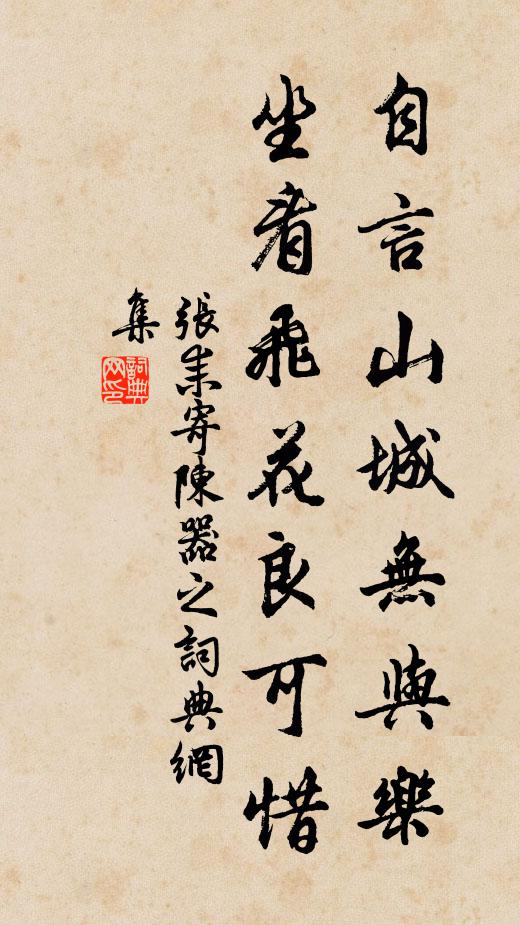 自言山城無與樂
坐看飛花良可惜
張耒寄陳器之詞典網
集
詞典
网印